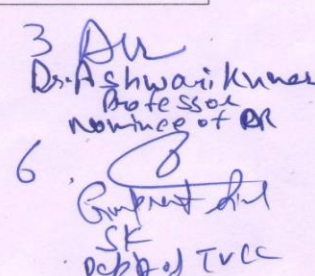 3
Dr. Ashwani Kumar
Professor
Nominee of DR
6
SK
Deptt of TVCC